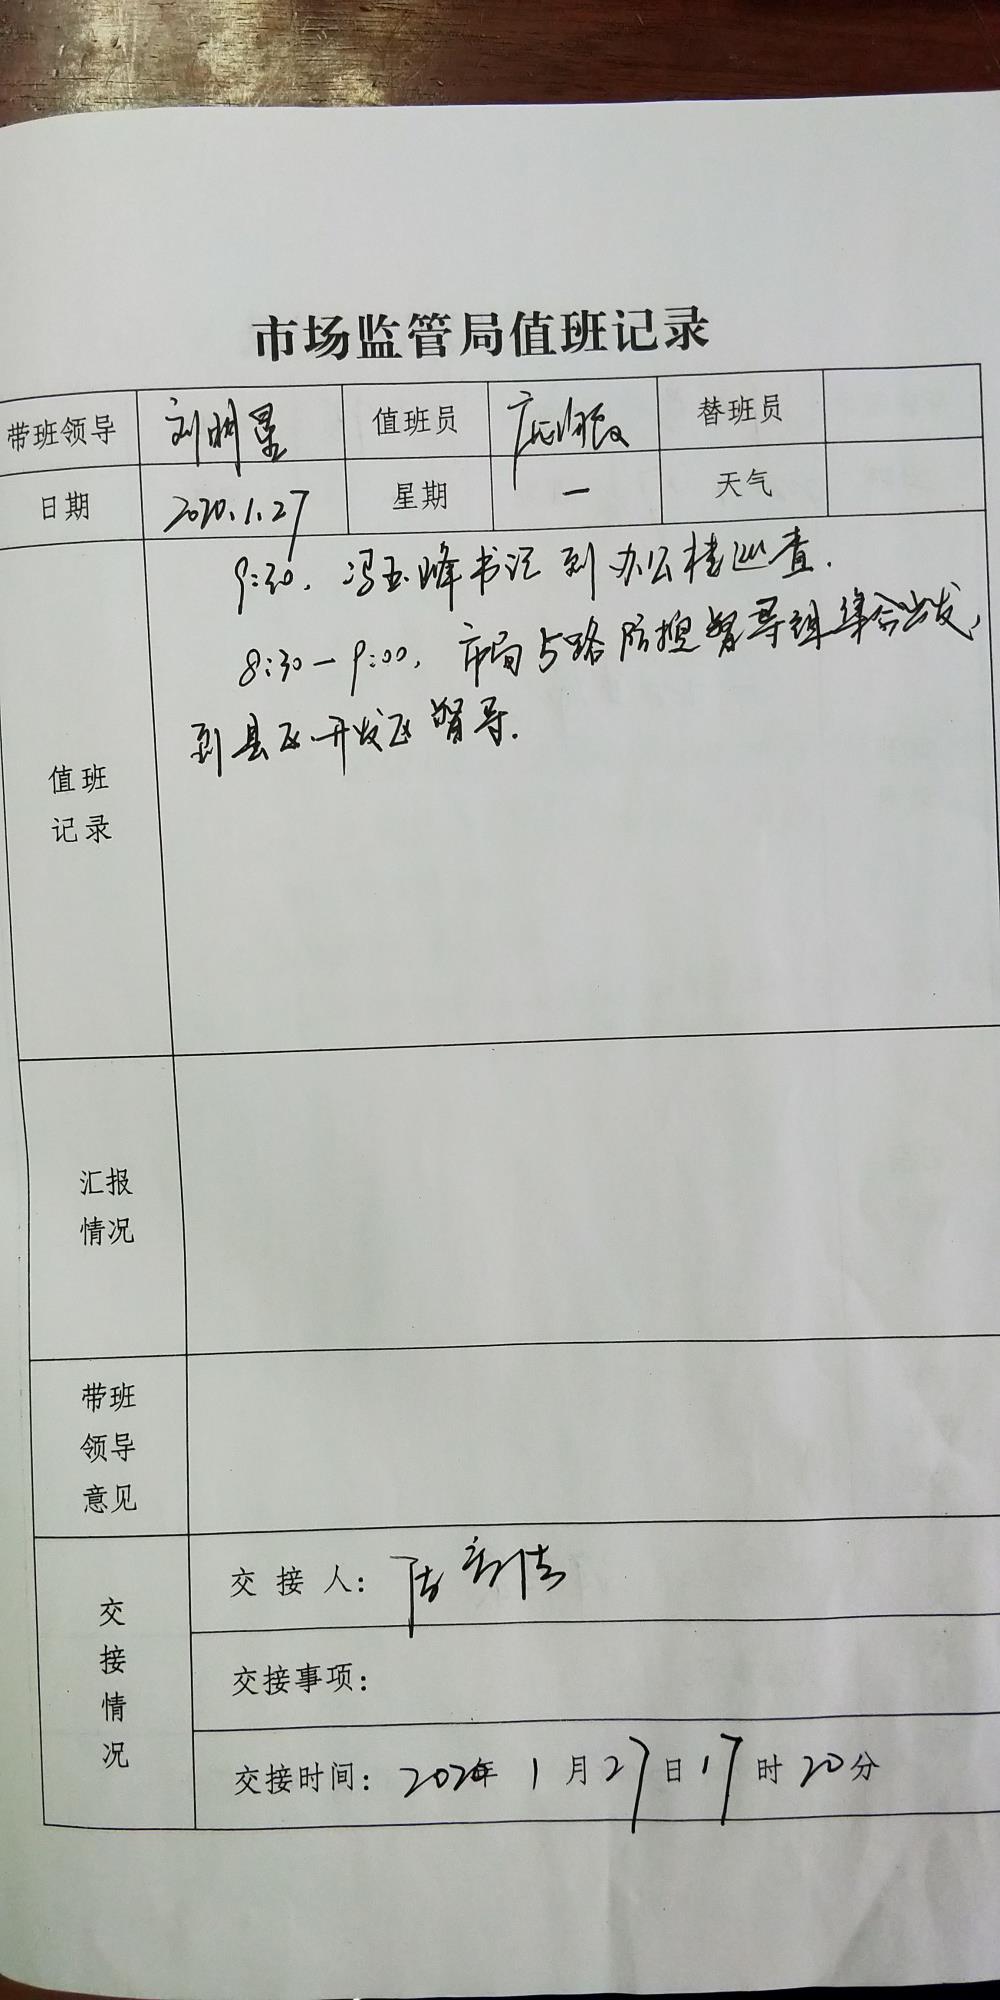 市场监管局值班记录
带班领导 刘明星 值班员 替班员
日期 2020.1.27 星期 一 天气
值班记录
9:30，冯玉峰书记到办公楼巡查.
8:30—9:00，市局5路防控督导组集合出发，
到县区、开发区督导.
汇报情况
带班领导意见
交接情况
交接人：
交接事项：
交接时间：2020年1月27日17时20分